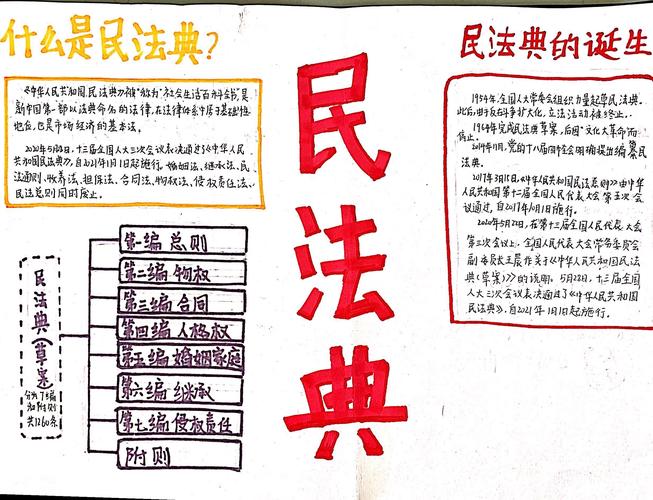 什么是民法典?
《中华人民共和国民法典》被称为"社会生活百科全书",是
新中国第一部以法典命名的法律,在法律体系中居于基础性
地位,也是市场经济的基本法。
2020年5月28日,十三届全国人大三次会议表决通过了《中华人民
共和国民法典》,自2021年1月1日起施行。婚姻法、继承法、民
法通则、收养法、担保法、合同法、物权法、侵权责任法、
民法总则同时废止。
民法典(草案)
分为7编
加附则
共1260条
第一编 总则
第二编 物权
第三编 合同
第四编 人格权
第五编 婚姻家庭
第六编 继承
第七编 侵权责任
附则
民法典
民法典的诞生
1954年,全国人大常委会组织力量起草民法典。
此后,由于反右斗争扩大化,立法活动被终止。
1964年完成民法典草案,后因"文化大革命"而
停止。
党的十八届四中全会明确提出编纂
民法典。
2017年3月15日,《中华人民共和国民法总则》由中华
人民共和国第十二届全国人民代表大会第五次会
议通过,自2017年10月1日施行。
2020年5月22日,在第十三届全国人民代表大会
第三次会议上,全国人民代表大会常务委员会
副委员长王晨作关于《中华人民共和国民法
典(草案)》的说明。5月28日,十三届全国
人大三次会议表决通过了《中华人民共和国
民法典》,自2021年1月1日起施行。